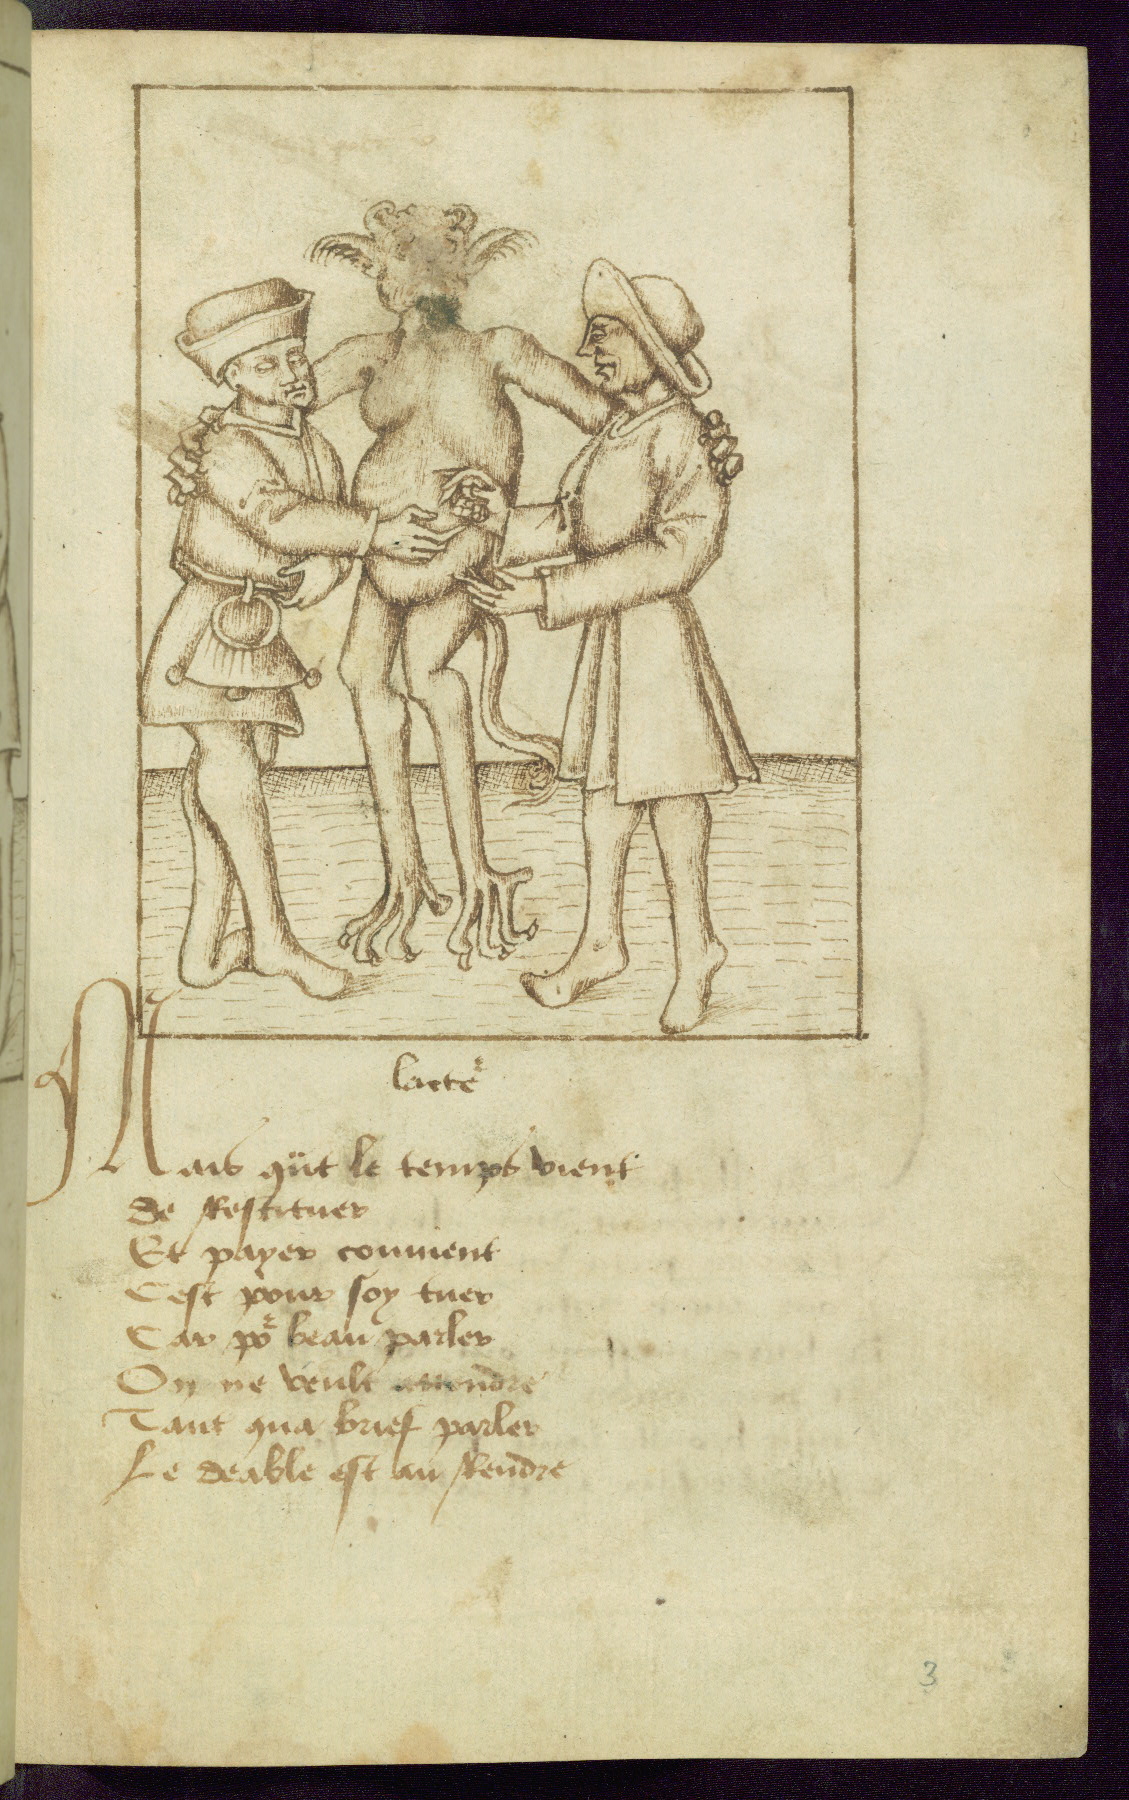 lacte͛
Mais qũt le temps vient
De Restituer
Et payer convient
Cest pour soy tuer
Car po͛ beau parler
On ne veult attendre
Tant qua brief parler
Le deable est au Rendre
3